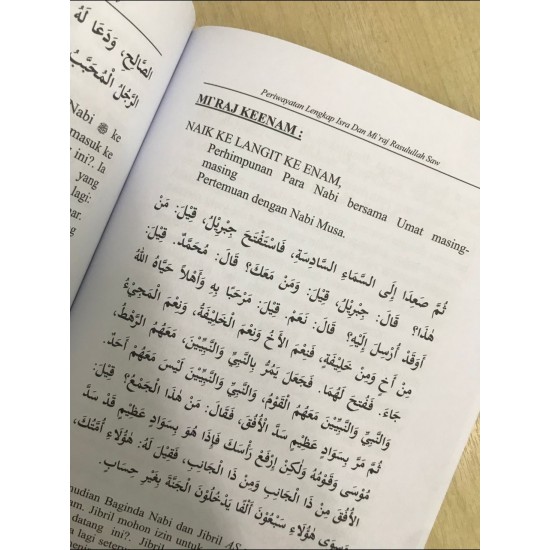 الصَّالِحِ، وَدَعَا لَهُ
الرَّجُلُ الْمُحَبَّبُ
Nabi ﷺ ke
masuk ke
ini?. Ia
yang
lagi:
Periwayatan Lengkap Isra Dan Mi'raj Rasulullah Saw
MI'RAJ KEENAM :
NAIK KE LANGIT KE ENAM,
Perhimpunan Para Nabi bersama Umat masing-
masing
Pertemuan dengan Nabi Musa.
ثُمَّ صَعِدَا إِلَى السَّمَاءِ السَّادِسَةِ، فَاسْتَفْتَحَ جِبْرِيْلُ، قِيْلَ: مَنْ
هٰذَا؟ قَالَ: جِبْرِيْلُ، قِيْلَ: وَمَنْ مَعَكَ؟ قَالَ: مُحَمَّدٌ. قِيْلَ:
أَوَقَدْ أُرْسِلَ إِلَيْهِ؟ قَالَ: نَعَمْ. قِيْلَ: مَرْحَبًا بِهِ وَأَهْلًا حَيَّاهُ اللهُ
مِنْ أَخٍ وَمِنْ خَلِيْفَةٍ، فَنِعْمَ الْأَخُ وَنِعْمَ الْخَلِيْفَةُ، وَنِعْمَ الْمَجِيْءُ
جَاءَ. فَفُتِحَ لَهُمَا. فَجَعَلَ يَمُرُّ بِالنَّبِيِّ وَالنَّبِيِّيْنَ، مَعَهُمُ الرَّهْطُ،
وَالنَّبِيِّ وَالنَّبِيِّيْنَ مَعَهُمُ الْقَوْمُ، وَالنَّبِيِّ وَالنَّبِيِّيْنَ لَيْسَ مَعَهُمْ أَحَدٌ.
ثُمَّ مَرَّ بِسَوَادٍ عَظِيْمٍ سَدَّ الْأُفُقَ، فَقَالَ: مَنْ هٰذَا الْجَمْعُ؟ قِيْلَ:
مُوْسَى وَقَوْمُهُ وَلٰكِنْ اِرْفَعْ رَأْسَكَ فَإِذَا هُوَ بِسَوَادٍ عَظِيْمٍ قَدْ سَدَّ
الْأُفُقَ مِنْ ذَا الْجَانِبِ وَمِنْ ذَا الْجَانِبِ، فَقِيْلَ لَهُ: هٰؤُلَاءِ أُمَّتُكَ،
وَسِوَى هٰؤُلَاءِ سَبْعُوْنَ أَلْفًا يَدْخُلُوْنَ الْجَنَّةَ بِغَيْرِ حِسَابٍ.
mudian Baginda Nabi dan Jibril AS
Jibril mohon izin untuk
datang ini?. Jibril
lagi